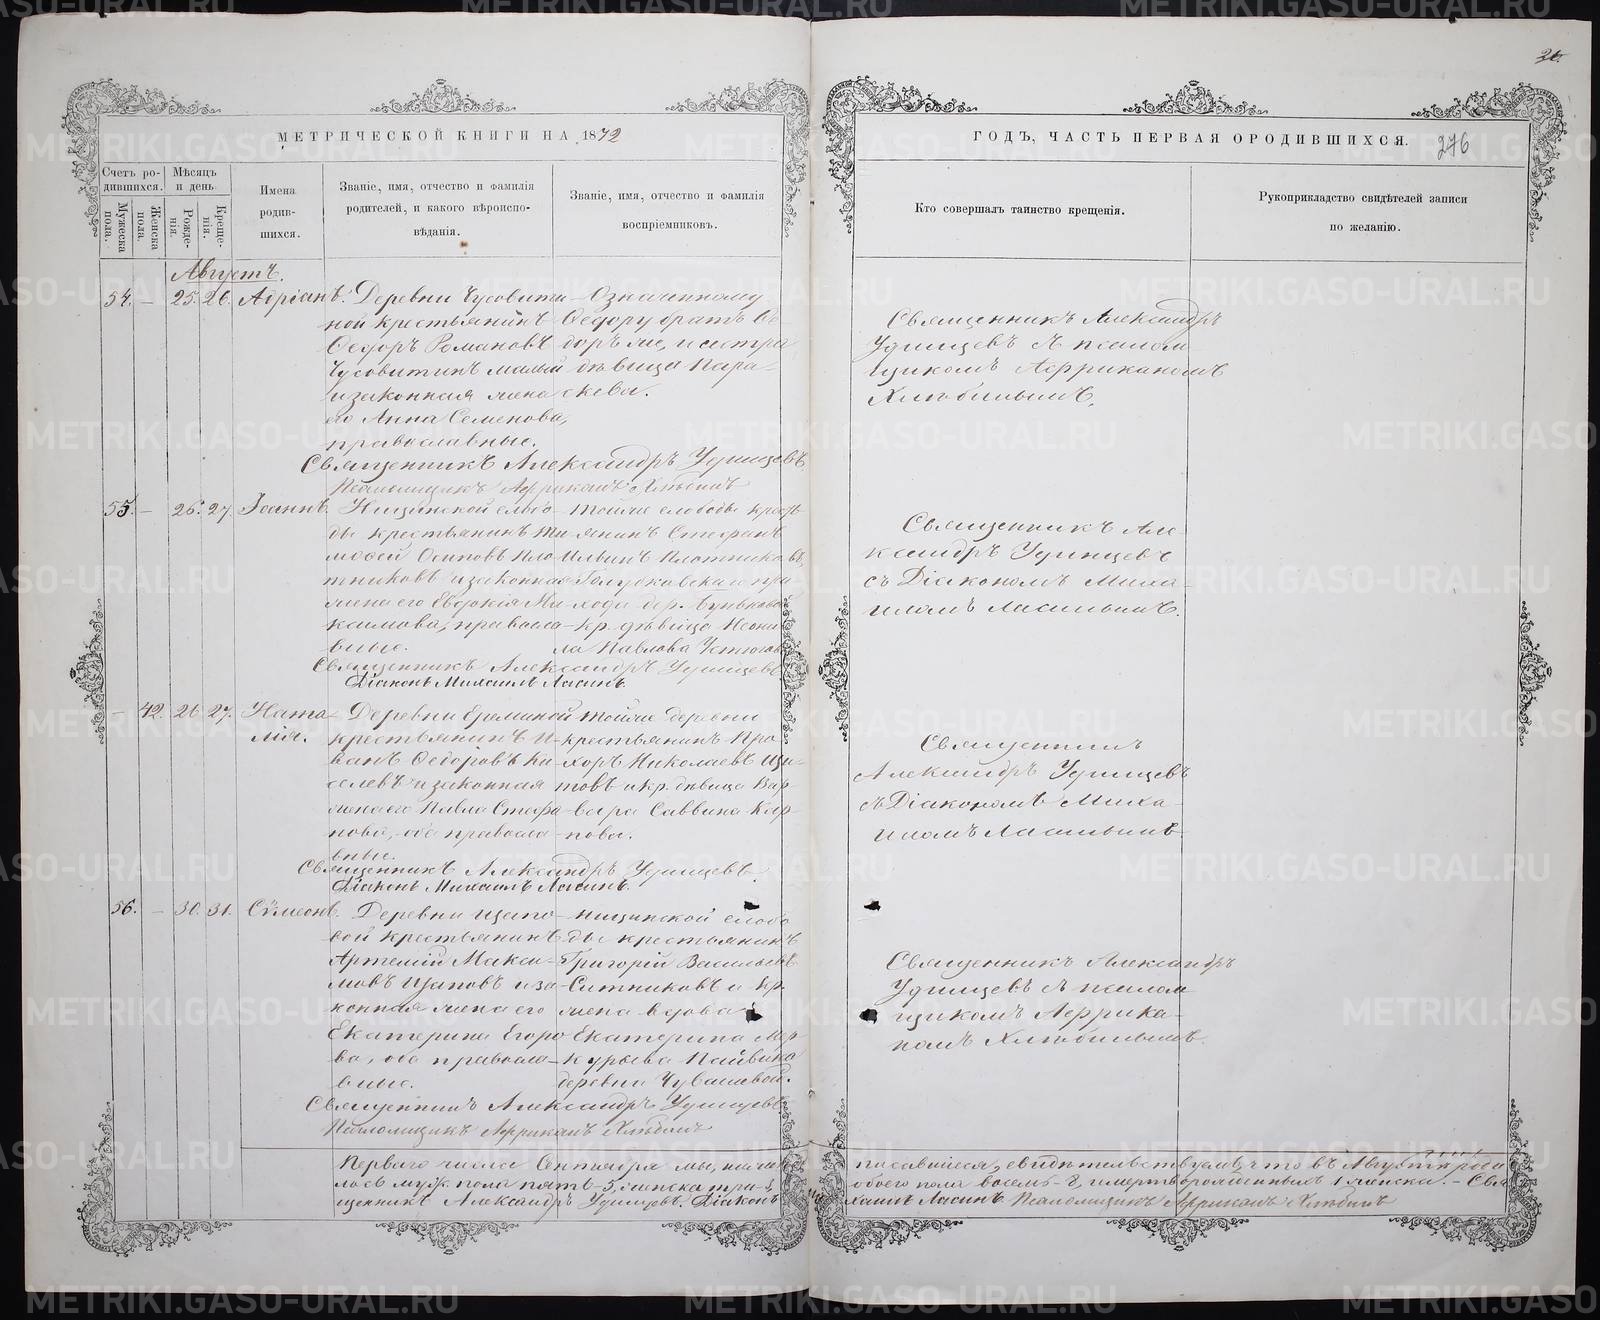 26.
МЕТРИЧЕСКОЙ КНИГИ НА 1872
ГОДЪ, ЧАСТЬ ПЕРВАЯ ОРОДИВШИХСЯ.
276
Счетъ ро-
дившихся.
Мужеска
пола.
Женска
пола.
Мѣсяцъ
и день
Рожде-
нія.
Креще-
нія.
Имена
родив-
шихся.
Званіе, имя, отчество и фамилія
родителей, и какого вѣроиспо-
вѣданія.
Званіе, имя, отчество и фамилія
воспріемниковъ.
Кто совершалъ таинство крещенія.
Рукоприкладство свидѣтелей записи
по желанію.
Августъ.
54. – 25. 26. Адріанъ.
Деревни Чусовити-
ной крестьянинъ
Ѳедоръ Романовъ
Чусовитинъ малый
и законная жена
его Анна Семенова,
православные.
Означенному
Ѳедору братъ Ѳе-
доръ же, и сестра
дѣвица Пара-
скева.
Священникъ Александръ Удинцевъ
Псаломщикъ Африканъ Хлѣбинъ
Священникъ Александръ
Удинцевъ съ псалом
щикомъ Африканомъ
Хлѣбинымъ.
55. – 26. 27. Іоаннъ.
Ницинской слобо-
ды крестьянинъ Ти-
моѳей Осиповъ Пло-
тниковъ и законная
жена его Евдокія Ма-
ксимова, правосла-
вные.
Тойже слободы кресть
янинъ Стефанъ
Ильинъ Плотниковъ,
Голубковскаго при-
хода дер. Буньковой
кр. дѣвица Неони-
ла Павлова Устюгова
Священникъ Александръ Удинцевъ
Діаконъ Михаилъ Ласинъ.
Священникъ Але-
ксандръ Удинцевъ
съ Діакономъ Миха-
иломъ Ласинымъ.
– 42. 26. 27. Ната-
лія.
Деревни Ереминой
крестьянинъ И-
ванъ Ѳедоровъ Ки-
селевъ и законная
жена его Павла Стефа-
нова, оба правосла-
вные.
Тойже деревни
крестьянинъ Про-
хоръ Николаевъ Щи-
товъ и кр. дѣвица Вар-
вара Саввина Кар-
пова.
Священникъ Александръ Удинцевъ.
Діаконъ Михаилъ Ласинъ.
Священникъ
Александръ Удинцевъ
съ Діакономъ Миха-
иломъ Ласинымъ.
56. – 30. 31. Симеонъ.
Деревни Щапо-
вой крестьянинъ
Артемій Макси-
мовъ Щаповъ и за-
конная жена его
Екатерина Егоро-
ва, оба правосла-
вные.
Ницинской слобо
ды крестьянинъ
Григорій Васильевъ
Ситниковъ и кр.
жена вдова
Екатерина Мер-
курьева Пайвина
деревни Чувашевой.
Священникъ Александръ Удинцевъ
Псаломщикъ Африканъ Хлѣбинъ
Священникъ Александръ
Удинцевъ съ псалом
щикомъ Африка-
номъ Хлѣбинымъ.
Перваго числа Сентября мы, нижеподписавшіеся, свидѣтельствуемъ, что въ Августѣ роди
лось муж. пола пять-5, женска три-3, обоего пола восемь-8, и мертворожденныхъ 1 женска. – Свя
щенникъ Александръ Удинцевъ. Діаконъ Михаилъ Ласинъ Псаломщикъ Африканъ Хлѣбинъ
METRIKI.GASO-URAL.RU